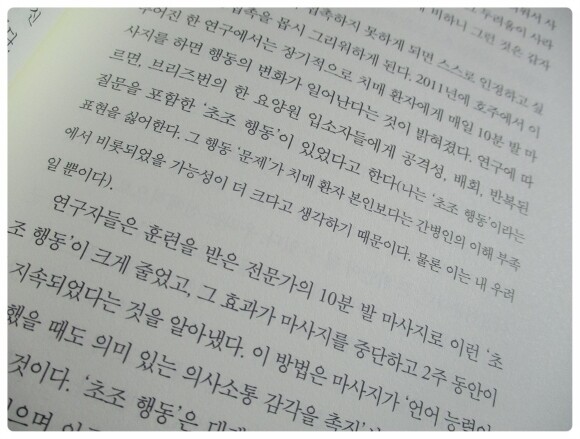 접촉하지 못하게 되면 스스로 인정하고 싶
접촉을 몹시 그리워하게 된다. 2011년에 호주에서 이
루어진 한 연구에서는 장기적으로 치매 환자에게 매일 10분 발 마
사지를 하면 행동의 변화가 일어난다는 것이 밝혀졌다. 연구에 따
르면, 브리즈번의 한 요양원 입소자들에게 공격성, 배회, 반복된
질문을 포함한 ‘초조 행동’이 있었다고 한다(나는 ‘초조 행동’이라는
표현을 싫어한다. 그 행동 ‘문제’가 치매 환자 본인보다는 간병인의 이해 부족
에서 비롯되었을 가능성이 더 크다고 생각하기 때문이다. 물론 이는 내 우려
일 뿐이다).
연구자들은 훈련을 받은 전문가의 10분 발 마사지로 이런 ‘초
조 행동’이 크게 줄었고, 그 효과가 마사지를 중단하고 2주 동안이
지속되었다는 것을 알아냈다. 이 방법은 마사지가 ‘언어 능력이
했을 때도 의미 있는 의사소통 감각을 촉지’
것이다. ‘초조 행동’은